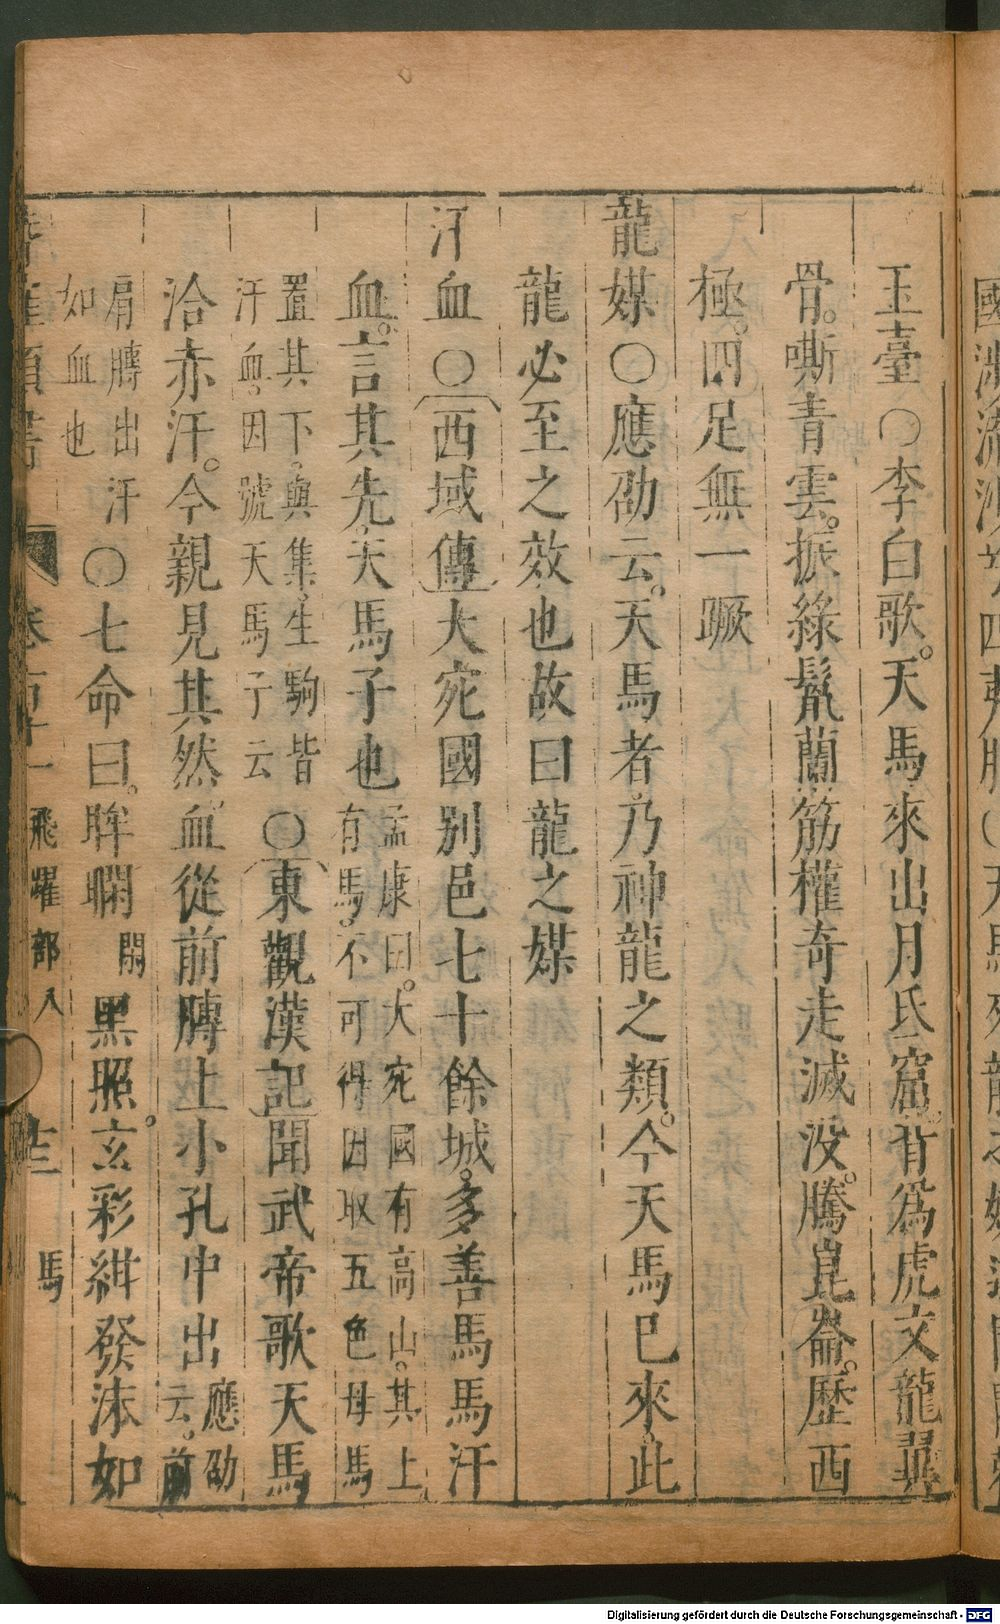 玉臺○李白歌。天馬來出月氏窟。背爲虎文龍翼
骨。嘶青雲。振綠鬃蘭筋權奇走滅没。騰崑崙。歷西
極。四足無一蹶
龍媒○應劭云。天馬者乃神龍之類。今天馬巳來此
龍必至之效也故曰龍之媒
汗血○西域傳大宛國别邑七十餘城。多善馬馬汗
血。言其先天馬子也
孟康曰。大宛國有高山。其上
有馬。不可得因取五色母馬
置其下。與集。生駒皆
汗血。因號天馬子云
○東觀漢記聞武帝歌天馬
洽亦汗。今親見其然血從前膊上小孔中出
應劭
云。前
肩膊出汗
如血也
○七命曰。眸
瞷
黑照。玄彩紺發沫如
飛躍部 馬
Digitalisierung gefördert durch die Deutsche Forschungsgemeinschaft - DFG